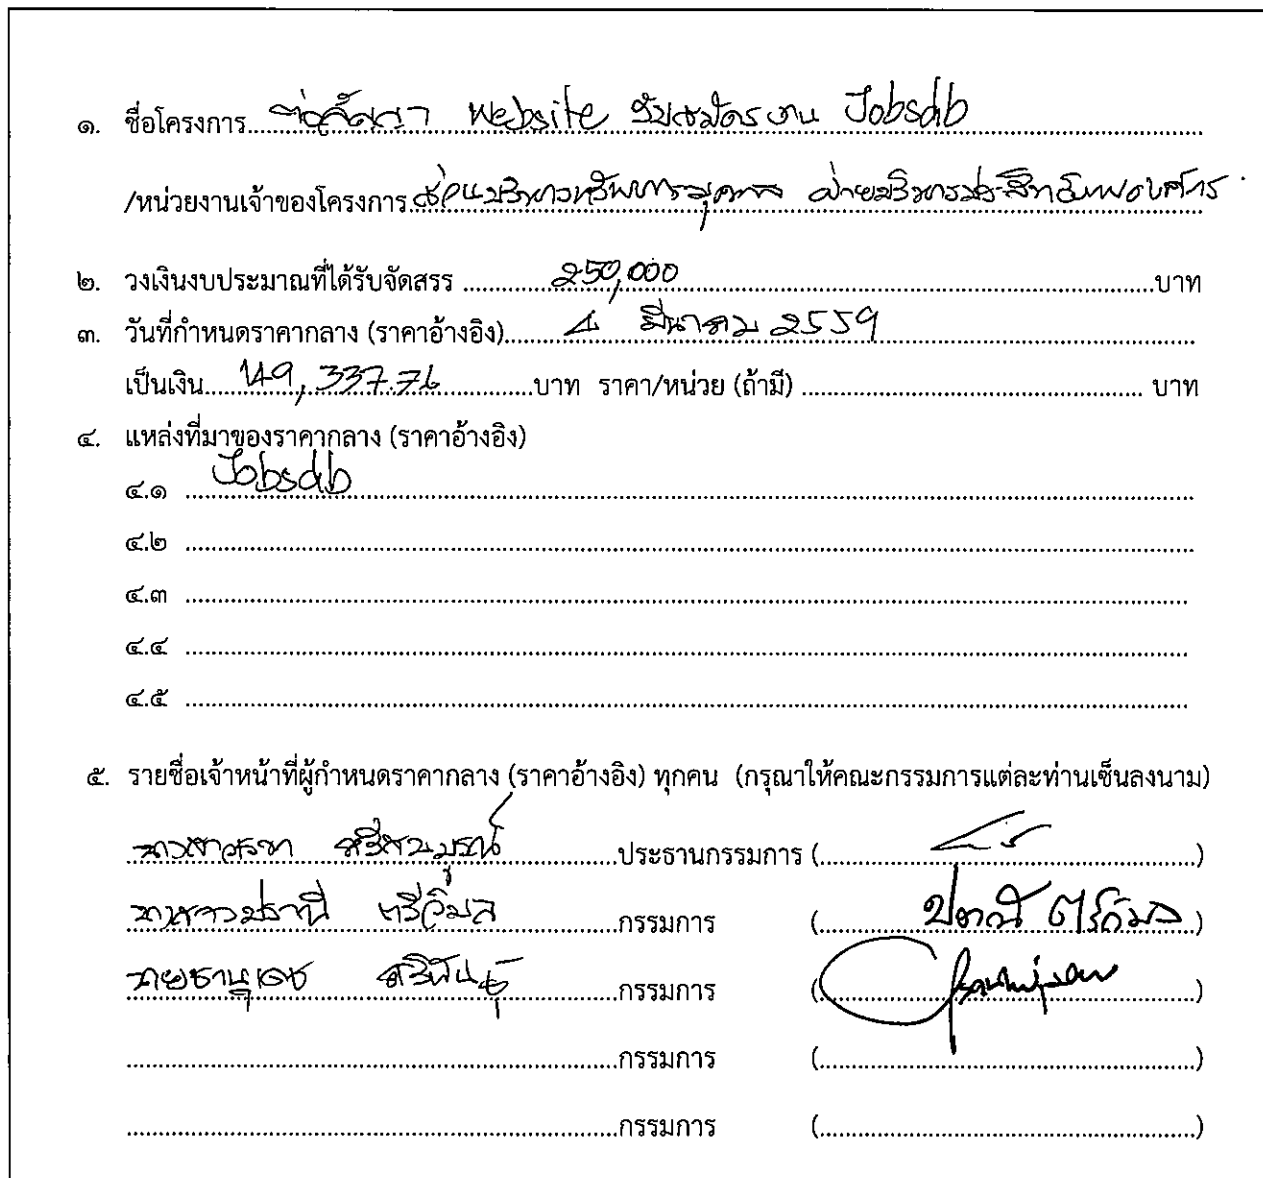 ๑. ชื่อโครงการ ต่อสัญญา Website รับสมัครงาน Jobsdb
/หน่วยงานเจ้าของโครงการ ส่วนบริหารทรัพยากรบุคคล ฝ่ายบริหารประสิทธิภาพองค์กร
๒. วงเงินงบประมาณที่ได้รับจัดสรร 250,000 บาท
๓. วันที่กำหนดราคากลาง (ราคาอ้างอิง) 4 มีนาคม 2559
เป็นเงิน 149,337.76 บาท ราคา/หน่วย (ถ้ามี) บาท
๔. แหล่งที่มาของราคากลาง (ราคาอ้างอิง)
๔.๑ Jobsdb
๔.๒
๔.๓
๔.๔
๔.๕
๕. รายชื่อเจ้าหน้าที่ผู้กำหนดราคากลาง (ราคาอ้างอิง) ทุกคน (กรุณาให้คณะกรรมการแต่ละท่านเซ็นลงนาม)
ศรีสมบูรณ์ ประธานกรรมการ ( )
นางสาวปราณี ตรีวิมล กรรมการ (ปราณี ตรีวิมล)
นายธานุเดช ศรีพันธุ์ กรรมการ ( )
กรรมการ ( )
กรรมการ ( )